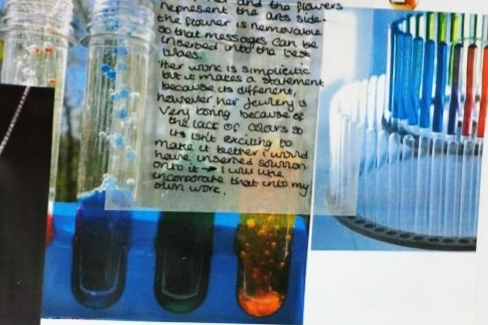 and the flowers
represent the arts side.
the flower is removable
so that messages can be
inserted into the test
tubes.
Her work is simplistic
but it makes a statement
because its different,
however her jewlery is
very boring because of
the lack of colours so
its isn't exciting to
make it better i would
have inserted
onto it → I will
incorporate that into my
own work.